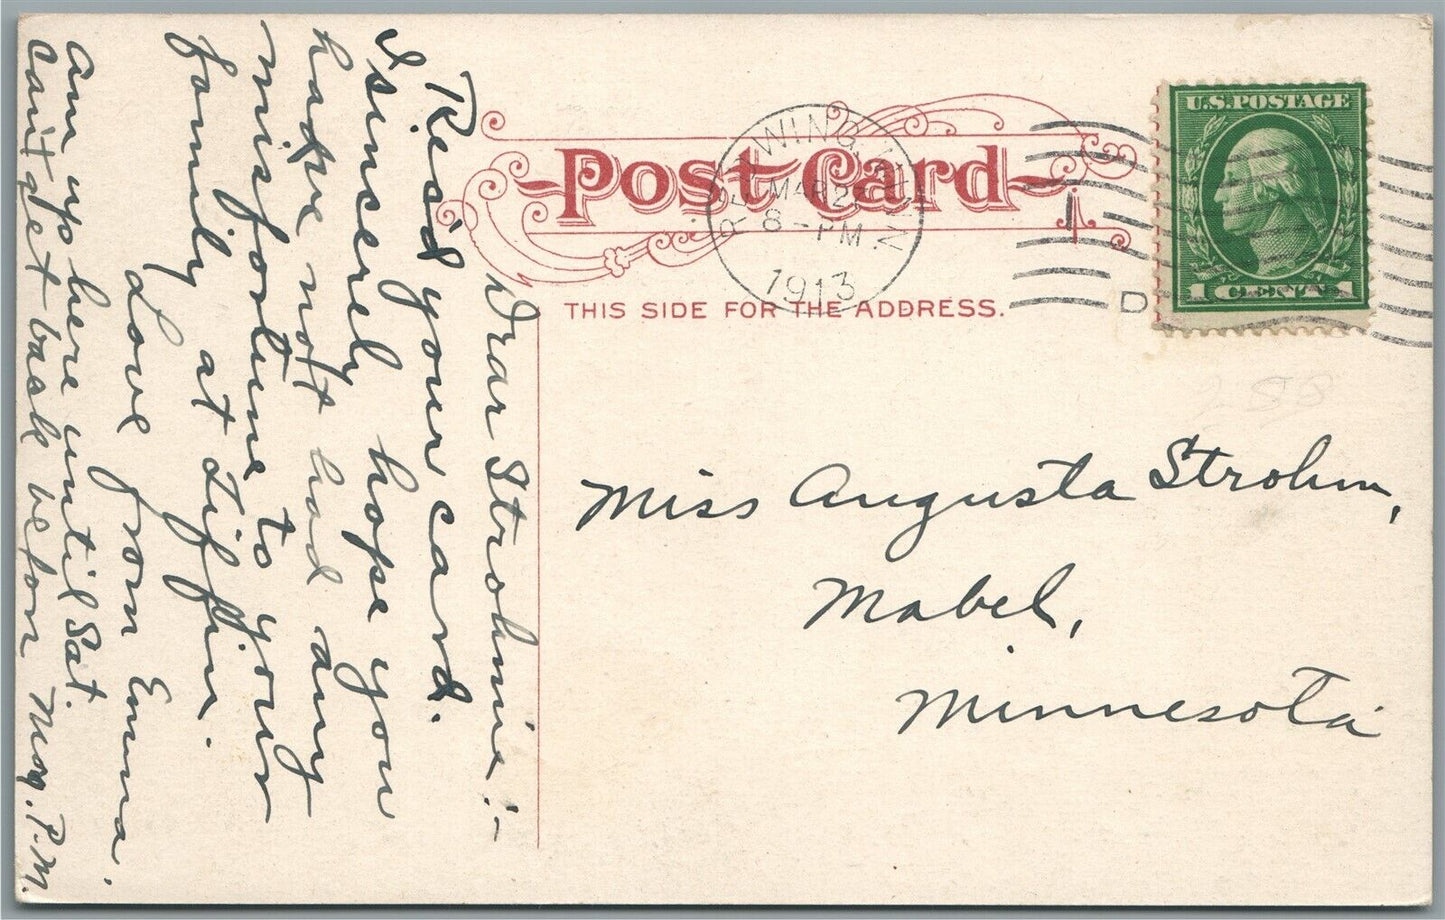 Dear Strohmie:-
Rec'd your card.
I sincerely hope you
have not had any
misfortune to your
family at Tiffin.
Love from Emma.
Am up here until Sat.
can't get back before Mon. P.M.
Post Card
THIS SIDE FOR THE ADDRESS.
RED WING, MINN
MAR 2
8-PM
1913
D
U.S. POSTAGE
1 CENT 1
288
Miss Augusta Strohm,
Mabel,
Minnesota